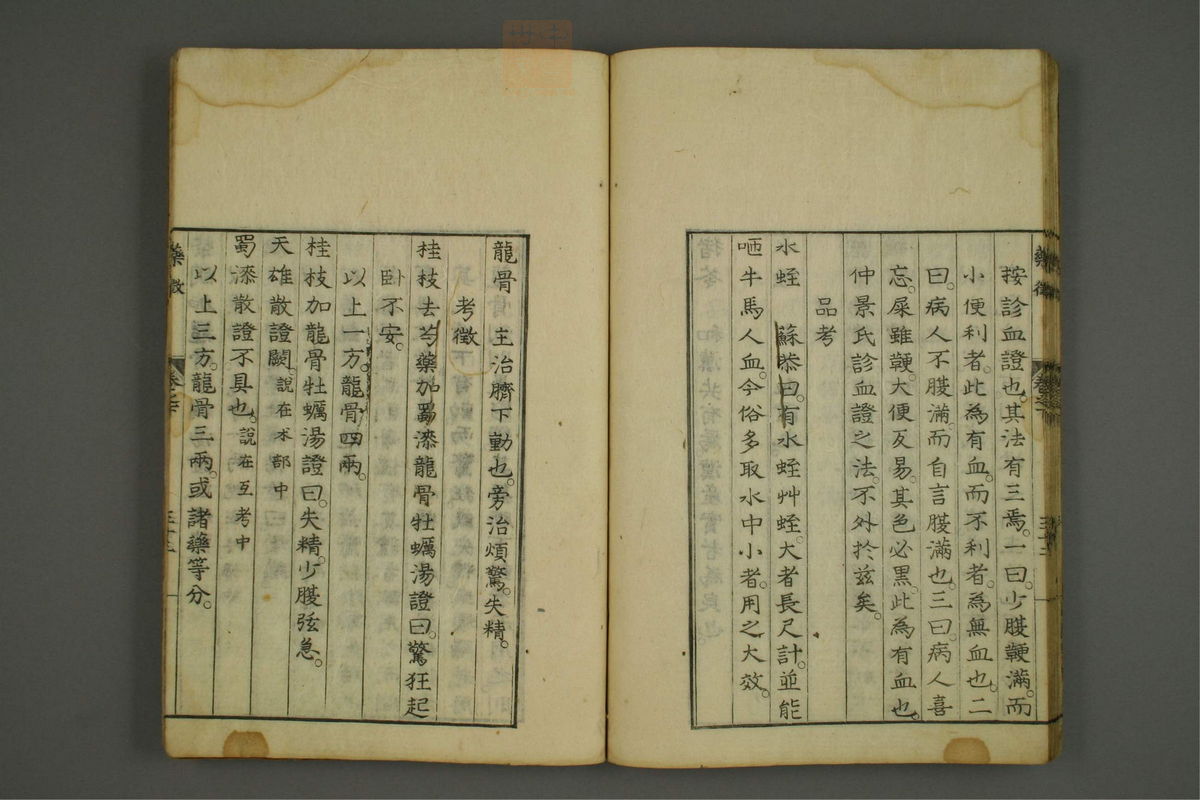 按診血證也。其法有三焉。一曰。少腹鞕滿。而
小便利者。此為有血。而不利者。為無血也。二
曰。病人不腹滿。而自言腹滿也。三曰病人喜
忘。屎雖鞕。大便反易。其色必黑。此為有血也。
仲景氏診血證之法。不外於茲矣。
品考
水蛭 蘇恭曰。有水蛭艸蛭。大者長尺計。並能
咂牛馬人血。今俗多取水中小者。用之大效。
龍骨 主治臍下動也。旁治煩驚。失精。
考徵
桂枝去芍藥加蜀漆龍骨牡蠣湯證曰。驚狂起
臥不安。
以上一方。龍骨四兩。
桂枝加龍骨牡蠣湯證曰。失精。少腹弦急。
天雄散證闕。說在朮部中
蜀漆散證不具也。說在互考中
以上三方。龍骨三兩。或諸藥等分。
藥徵